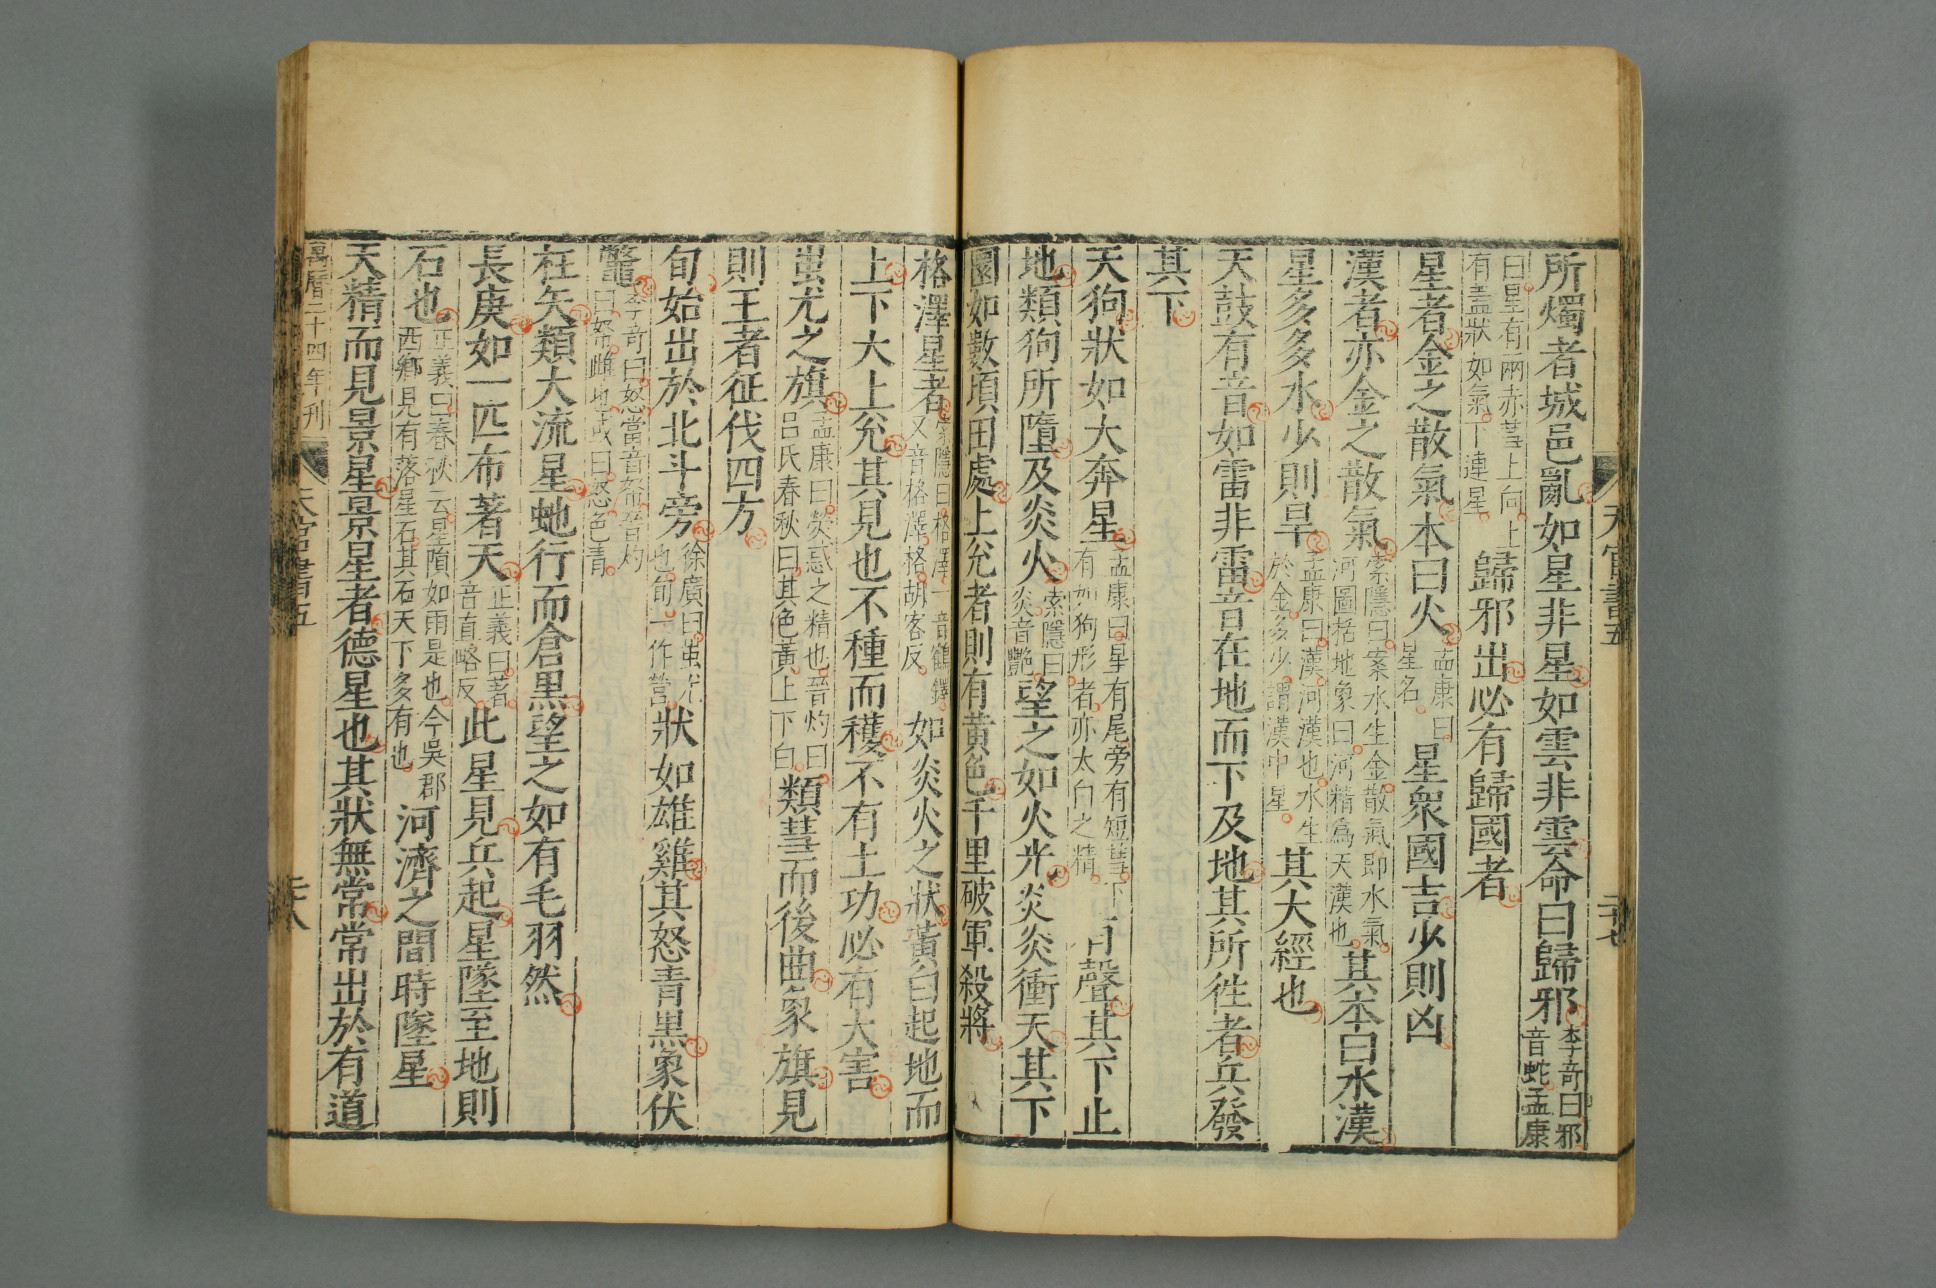 所燭者城邑亂如星非星如雲非雲命曰歸邪李奇曰邪音蛇孟康
曰星有兩赤彗上向上有蓋狀如氣下連星歸邪出必有歸國者
星者金之散氣本曰火孟康曰星名星衆國吉少則凶
漢者亦金之散氣索隱曰案水生金散氣即水氣河圖括地象曰河精為天漢也其本曰水漢
星多多水少則旱孟康曰漢河漢也水生於金多少謂漢中星其大經也
天鼓有音如雷非雷音在地而下及地其所徃者兵發
其下
天狗狀如大奔星孟康曰星有尾旁有短彗下有如狗形者亦太白之精有聲其下止
地類狗所墮及炎火索隱曰炎音艷望之如火光炎炎衝天其下
圜如數頃田處上兊者則有黄色千里破軍殺將
天官書五
二十七
格澤星者索隱曰格澤一音鶴鐸又音格澤格胡客反如炎火之狀黃白起地而
上下大上兊其見也不種而穫不有土功必有大害
蚩尤之旗孟康曰熒惑之精也晉灼曰呂氏春秋曰其色黃上下白類彗而後曲象旗見
則王者征伐四方
旬始出於北斗旁徐廣曰蚩尤也旬一作營狀如雄雞其怒青黒象伏
鼈李奇曰怒當音帑晉灼曰帑雌也或曰怒色青
枉矢類大流星虵行而倉黒望之如有毛羽然
長庚如一匹布著天正義曰著音直略反此星見兵起星墜至地則
石也正義曰春秋云星隕如雨是也今吳郡西鄉見有落星石其石天下多有也河濟之間時墜星
天精而見景星景星者德星也其狀無常常出於有道
萬曆二十四年刊
天官書五
二十八